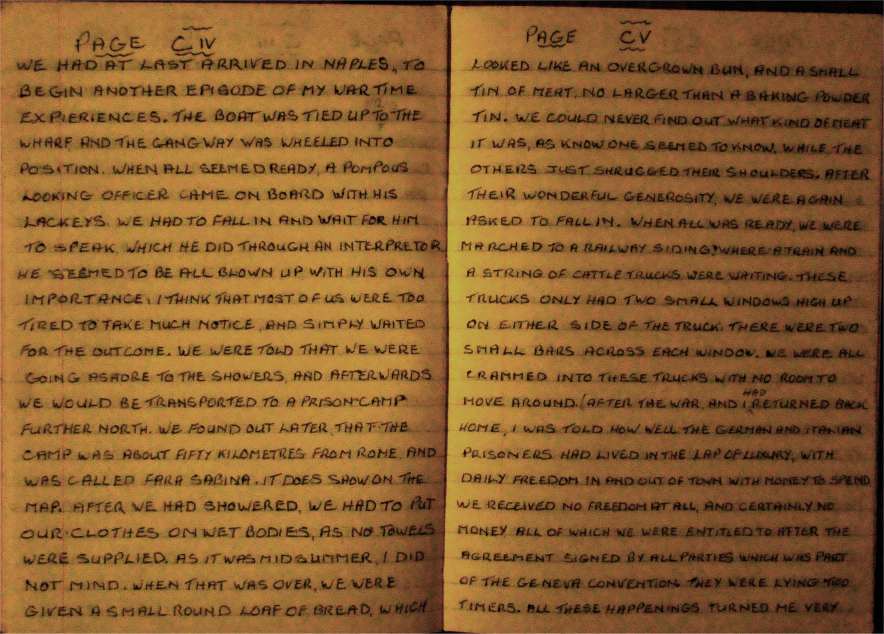 PAGE CIV
WE HAD AT LAST ARRIVED IN NAPLES, TO
BEGIN ANOTHER EPISODE OF MY WAR TIME
EXPIERIENCES. THE BOAT WAS TIED UP TO THE
WHARF AND THE GANG WAY WAS WHEELED INTO
POSITION. WHEN ALL SEEMED READY, A POMPOUS
LOOKING OFFICER CAME ON BOARD WITH HIS
LACKEYS. WE HAD TO FALL IN AND WAIT FOR HIM
TO SPEAK, WHICH HE DID THROUGH AN INTERPRETOR
HE SEEMED TO BE ALL BLOWN UP WITH HIS OWN
IMPORTANCE, I THINK THAT MOST OF US WERE TOO
TIRED TO TAKE MUCH NOTICE, AND SIMPLY WAITED
FOR THE OUTCOME. WE WERE TOLD THAT WE WERE
GOING ASHORE TO THE SHOWERS, AND AFTERWARDS
WE WOULD BE TRANSPORTED TO A PRISON-CAMP
FURTHER NORTH. WE FOUND OUT LATER, THAT THE
CAMP WAS ABOUT FIFTY KILOMETRES FROM ROME, AND
WAS CALLED FARA SABINA. IT DOES SHOW ON THE
MAP. AFTER WE HAD SHOWERED, WE HAD TO PUT
OUR CLOTHES ON WET BODIES, AS NO TOWELS
WERE SUPPLIED. AS IT WAS MIDSUMMER, I DID
NOT MIND. WHEN THAT WAS OVER, WE WERE
GIVEN A SMALL ROUND LOAF OF BREAD, WHICH
PAGE CV
LOOKED LIKE AN OVERGROWN BUN, AND A SMALL
TIN OF MEAT. NO LARGER THAN A BAKING POWDER
TIN. WE COULD NEVER FIND OUT WHAT KIND OF MEAT
IT WAS, AS KNOW ONE SEEMED TO KNOW. WHILE THE
OTHERS JUST SHRUGGED THEIR SHOULDERS. AFTER
THEIR WONDERFUL GENEROSITY, WE WERE AGAIN
ASKED TO FALL IN. WHEN ALL WAS READY, WE WERE
MARCHED TO A RAILWAY SIDING, WHERE A TRAIN AND
A STRING OF CATTLE TRUCKS WERE WAITING. THESE
TRUCKS ONLY HAD TWO SMALL WINDOWS HIGH UP
ON EITHER SIDE OF THE TRUCK. THERE WERE TWO
SMALL BARS ACROSS EACH WINDOW. WE WERE ALL
CRAMMED INTO THESE TRUCKS WITH NO ROOM TO
MOVE AROUND. (AFTER THE WAR, AND I HAD RETURNED BACK
HOME, I WAS TOLD HOW WELL THE GERMAN AND ITALIAN
PRISONERS HAD LIVED IN THE LAP OF LUXURY, WITH
DAILY FREEDOM IN AND OUT OF TOWN WITH MONEY TO SPEND
WE RECEIVED NO FREEDOM AT ALL, AND CERTAINLY NO
MONEY ALL OF WHICH WE WERE ENTITLED TO AFTER THE
AGREEMENT SIGNED BY ALL PARTIES WHICH WAS PART
OF THE GENEVA CONVENTION. THEY WERE LYING TWO
TIMERS. ALL THESE HAPPENINGS TURNED ME VERY